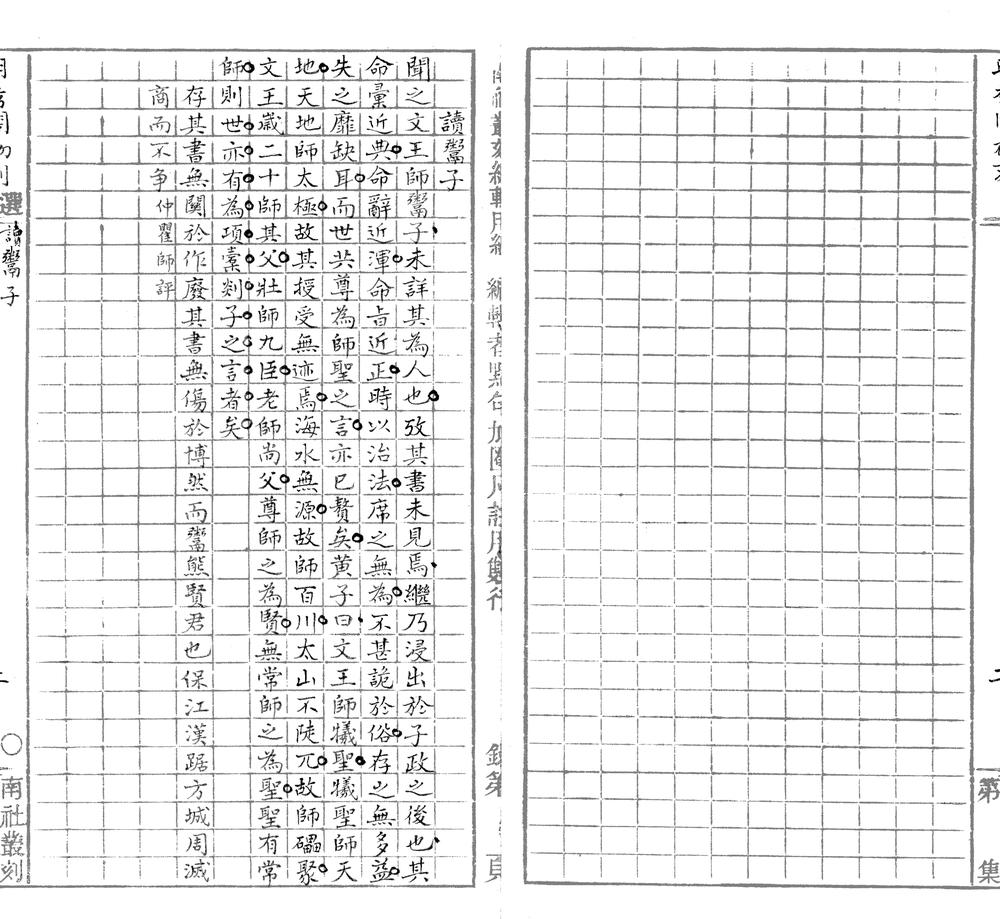 二
第
集
讀鬻子
聞之文王師鬻子未詳其為人也攷其書未見焉繼乃浸出於子政之後也其
命彙近典命辭近渾命旨近正時以治法席之無為不甚詭於俗存之無多益
失之靡缺耳而世共尊為師聖之言亦已贅矣黃子曰文王師犧聖犧聖師天
地天地師太極故其授受無迹焉海水無源故師百川太山不陡兀故師礧聚
文王歲二十師其父壯師九臣老師尚父尊師之為賢無常師之為聖聖有常
師則世亦有為項橐剡子之言者矣
存其書無關於作廢其書無傷於博然而鬻熊賢君也保江漢踞方城周滅
商而不争仲瞿師評
選
讀鬻子
二
〇
南社叢刻